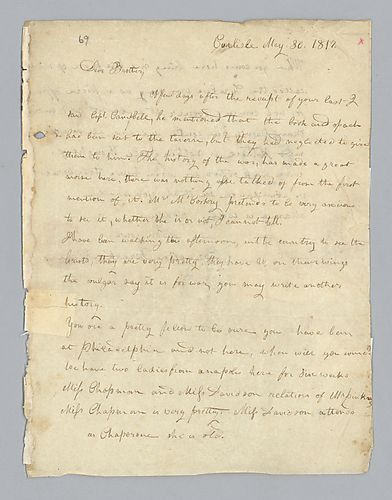 69
Carlisle May 30. 1812
Dear Brother,
A few days after the receipt of your last I
saw Capt Campbell, he mentioned that the book and
had been sent to the tavern, but they had neglected to give
them to him. The history of the war, has made a great
noise here, there was nothing else talked of from the first
mention of it. Mr. McCoskry pretends to be very anxious
to see it, whether she is or not, I cannot tell.
I have been walking this afternoon, in the country to see the
locusts, they are very pretty, they have W on their wings
the vulgar say it is for war, you may write another
history.
You are a pretty fellow to be sure, you have been
at Philadelphia and not here, when will you come.
We have two ladies from here for six weeks
Miss Chapman and Miss Davidson relation of Mr
Miss Chapman is very pretty. Miss Davidson attends
as Chaperone she is old.